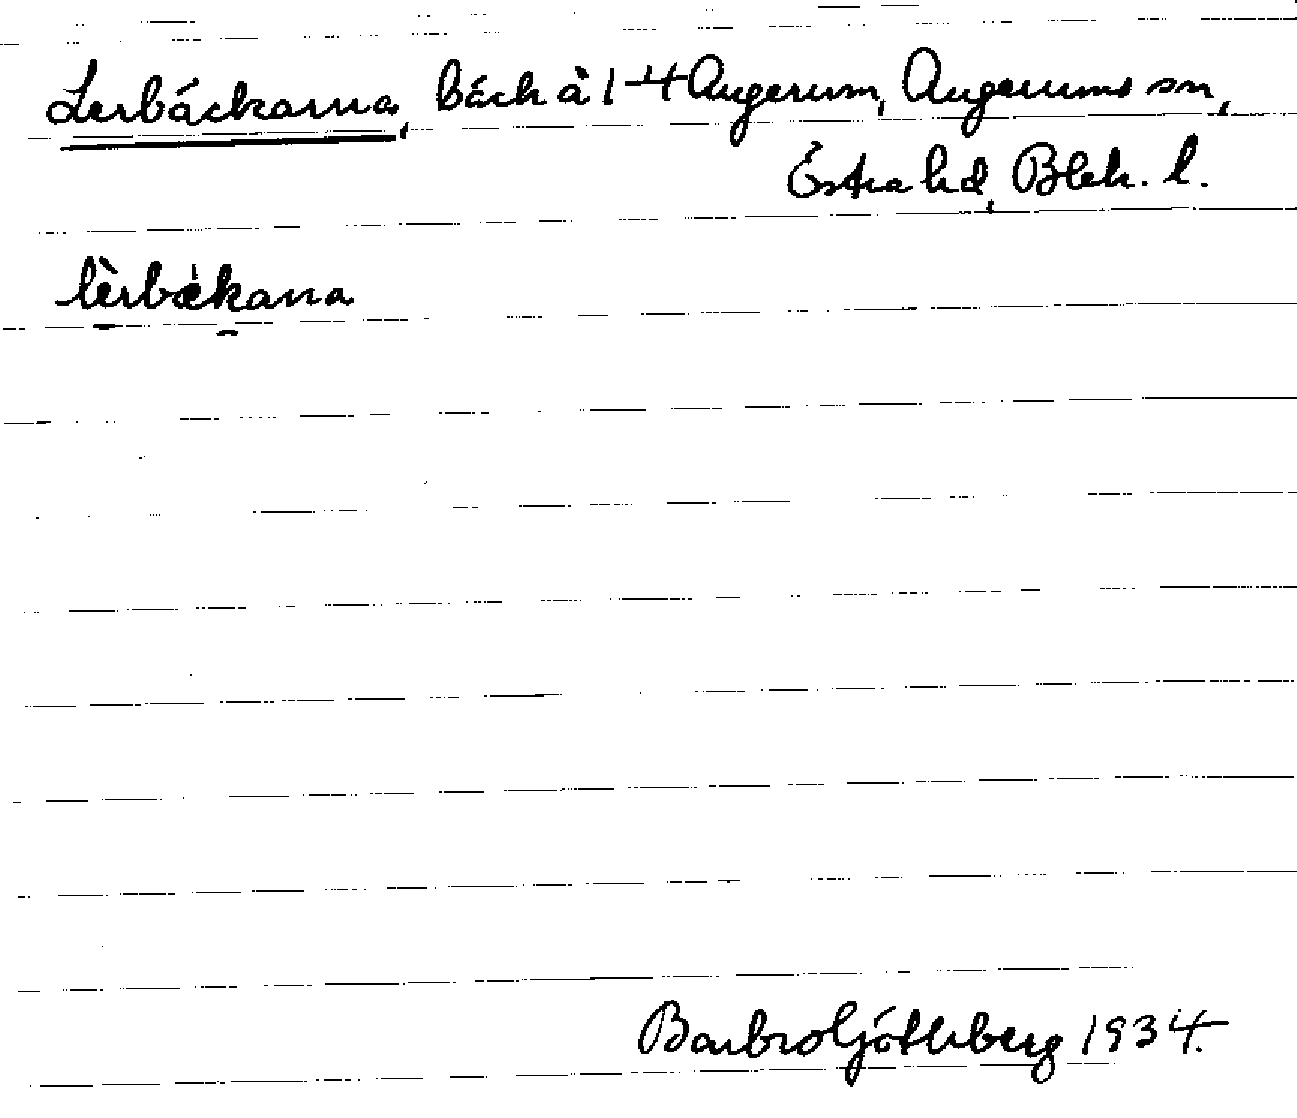 Lerbäckarna, bäck å 1-4 Augerum, Augerums sn,
Östra hd, Blek. l.
lèrbækana
Barbro Göthberg 1934.